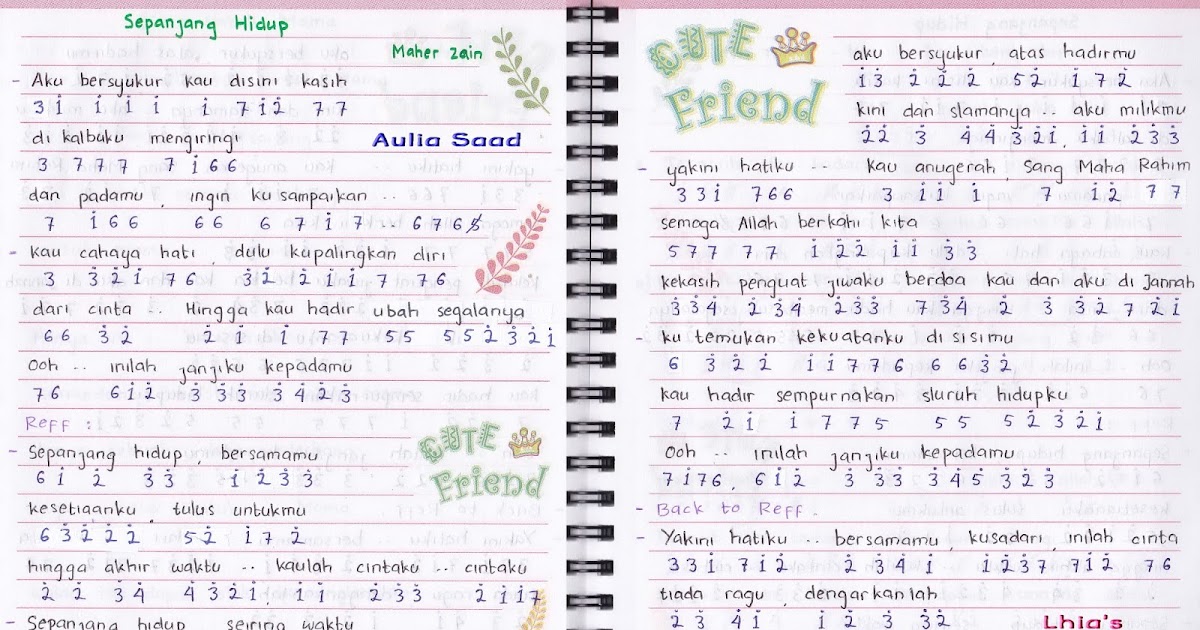 Sepanjang Hidup
Maher Zain
- Aku bersyukur kau disini kasih
3 1̇ 1̇ 1̇ 1̇ 1̇ 7 1̇ 2̇ 7 7
di kalbuku mengiringi
3 7 7 7 7 1̇ 6 6
Aulia Saad
dan padamu , ingin ku sampaikan ..
7 1̇ 6 6 6 6 6 7 1̇ 7 .. 6 7 6 5
- Kau cahaya hati , dulu kupalingkan diri
3 3̇ 2̇ 1̇ 7 6 3̇ 2̇ 2̇ 1̇ 1̇ 7 7 7 6
dari cinta .. Hingga kau hadir ubah segalanya
6 6 3̇ 2̇ 2̇ 1̇ 1̇ 7 7 5 5 5 5 2̇ 3̇ 2̇ 1̇
Ooh .. inilah janjiku kepadamu
7 6 6 1̇ 2̇ 3̇ 3̇ 3̇ 3̇ 4̇ 2̇ 3̇
Reff :
- Sepanjang hidup , bersamamu
6 1̇ 2̇ 3̇ 3̇ 1̇ 2̇ 3̇ 3̇
CUTE
Friend
kesetiaanku , tulus untukmu
6 3̇ 2̇ 2̇ 2̇ 5 2̇ 1̇ 7 2̇
hingga akhir waktu .. kaulah cintaku .. cintaku
2̇ 2̇ 3̇ 4̇ 4̇ 3̇ 2̇ 1̇ 1̇ 1̇ 2̇ 3̇ 3̇ 2̇ 1̇ 1̇ 7
- Sepanjang hidup seiring waktu
CUTE
Friend
aku bersyukur , atas hadirmu
1̇ 3̇ 2̇ 2̇ 2̇ 5 2̇ 1̇ 7 2̇
kini dan slamanya .. aku milikmu
2̇ 2̇ 3̇ 4̇ 4̇ 3̇ 2̇ 1̇ , 1̇ 1̇ 2̇ 3̇ 3̇
- yakini hatiku .. Kau anugerah Sang Maha Rahim
3 3 1̇ 7 6 6 3 1̇ 1̇ 1̇ 7 1̇ 2̇ 7 7
semoga Allah berkahi kita
5 7 7 7 7 1̇ 2̇ 2̇ 1̇ 1̇ 3̇ 3̇
kekasih penguat jiwaku berdoa kau dan aku di Jannah
3̇ 3̇ 4̇ 2̇ 3̇ 4̇ 2̇ 3̇ 3̇ 7 3̇ 4̇ 2̇ 3̇ 3̇ 2̇ 7 2̇ 1̇
- ku temukan kekuatanku disisimu
6 3̇ 2̇ 2̇ 1̇ 1̇ 7 7 6 6 6 3̇ 2̇
kau hadir sempurnakan sluruh hidupku
7 2̇ 1̇ 1̇ 7 7 5 5 5 5 2̇ 3̇ 2̇ 1̇
Ooh .. inilah janjiku kepadamu
7 1̇ 7 6 , 6 1̇ 2̇ 3̇ 3̇ 3̇ 3̇ 4̇ 5̇ 3̇ 2̇ 3̇
- Back to Reff .
- Yakini hatiku .. bersamamu , kusadari , inilah cinta
3 3 1̇ 7 1̇ 2̇ 2̇ 3̇ 4̇ 1̇ 1̇ 2̇ 3̇ 7 7 1̇ 2̇ 7 6
tiada ragu , dengarkanlah
2̇ 3̇ 4̇ 1̇ 1̇ 2̇ 3̇ 3̇ 2̇
Lhia's